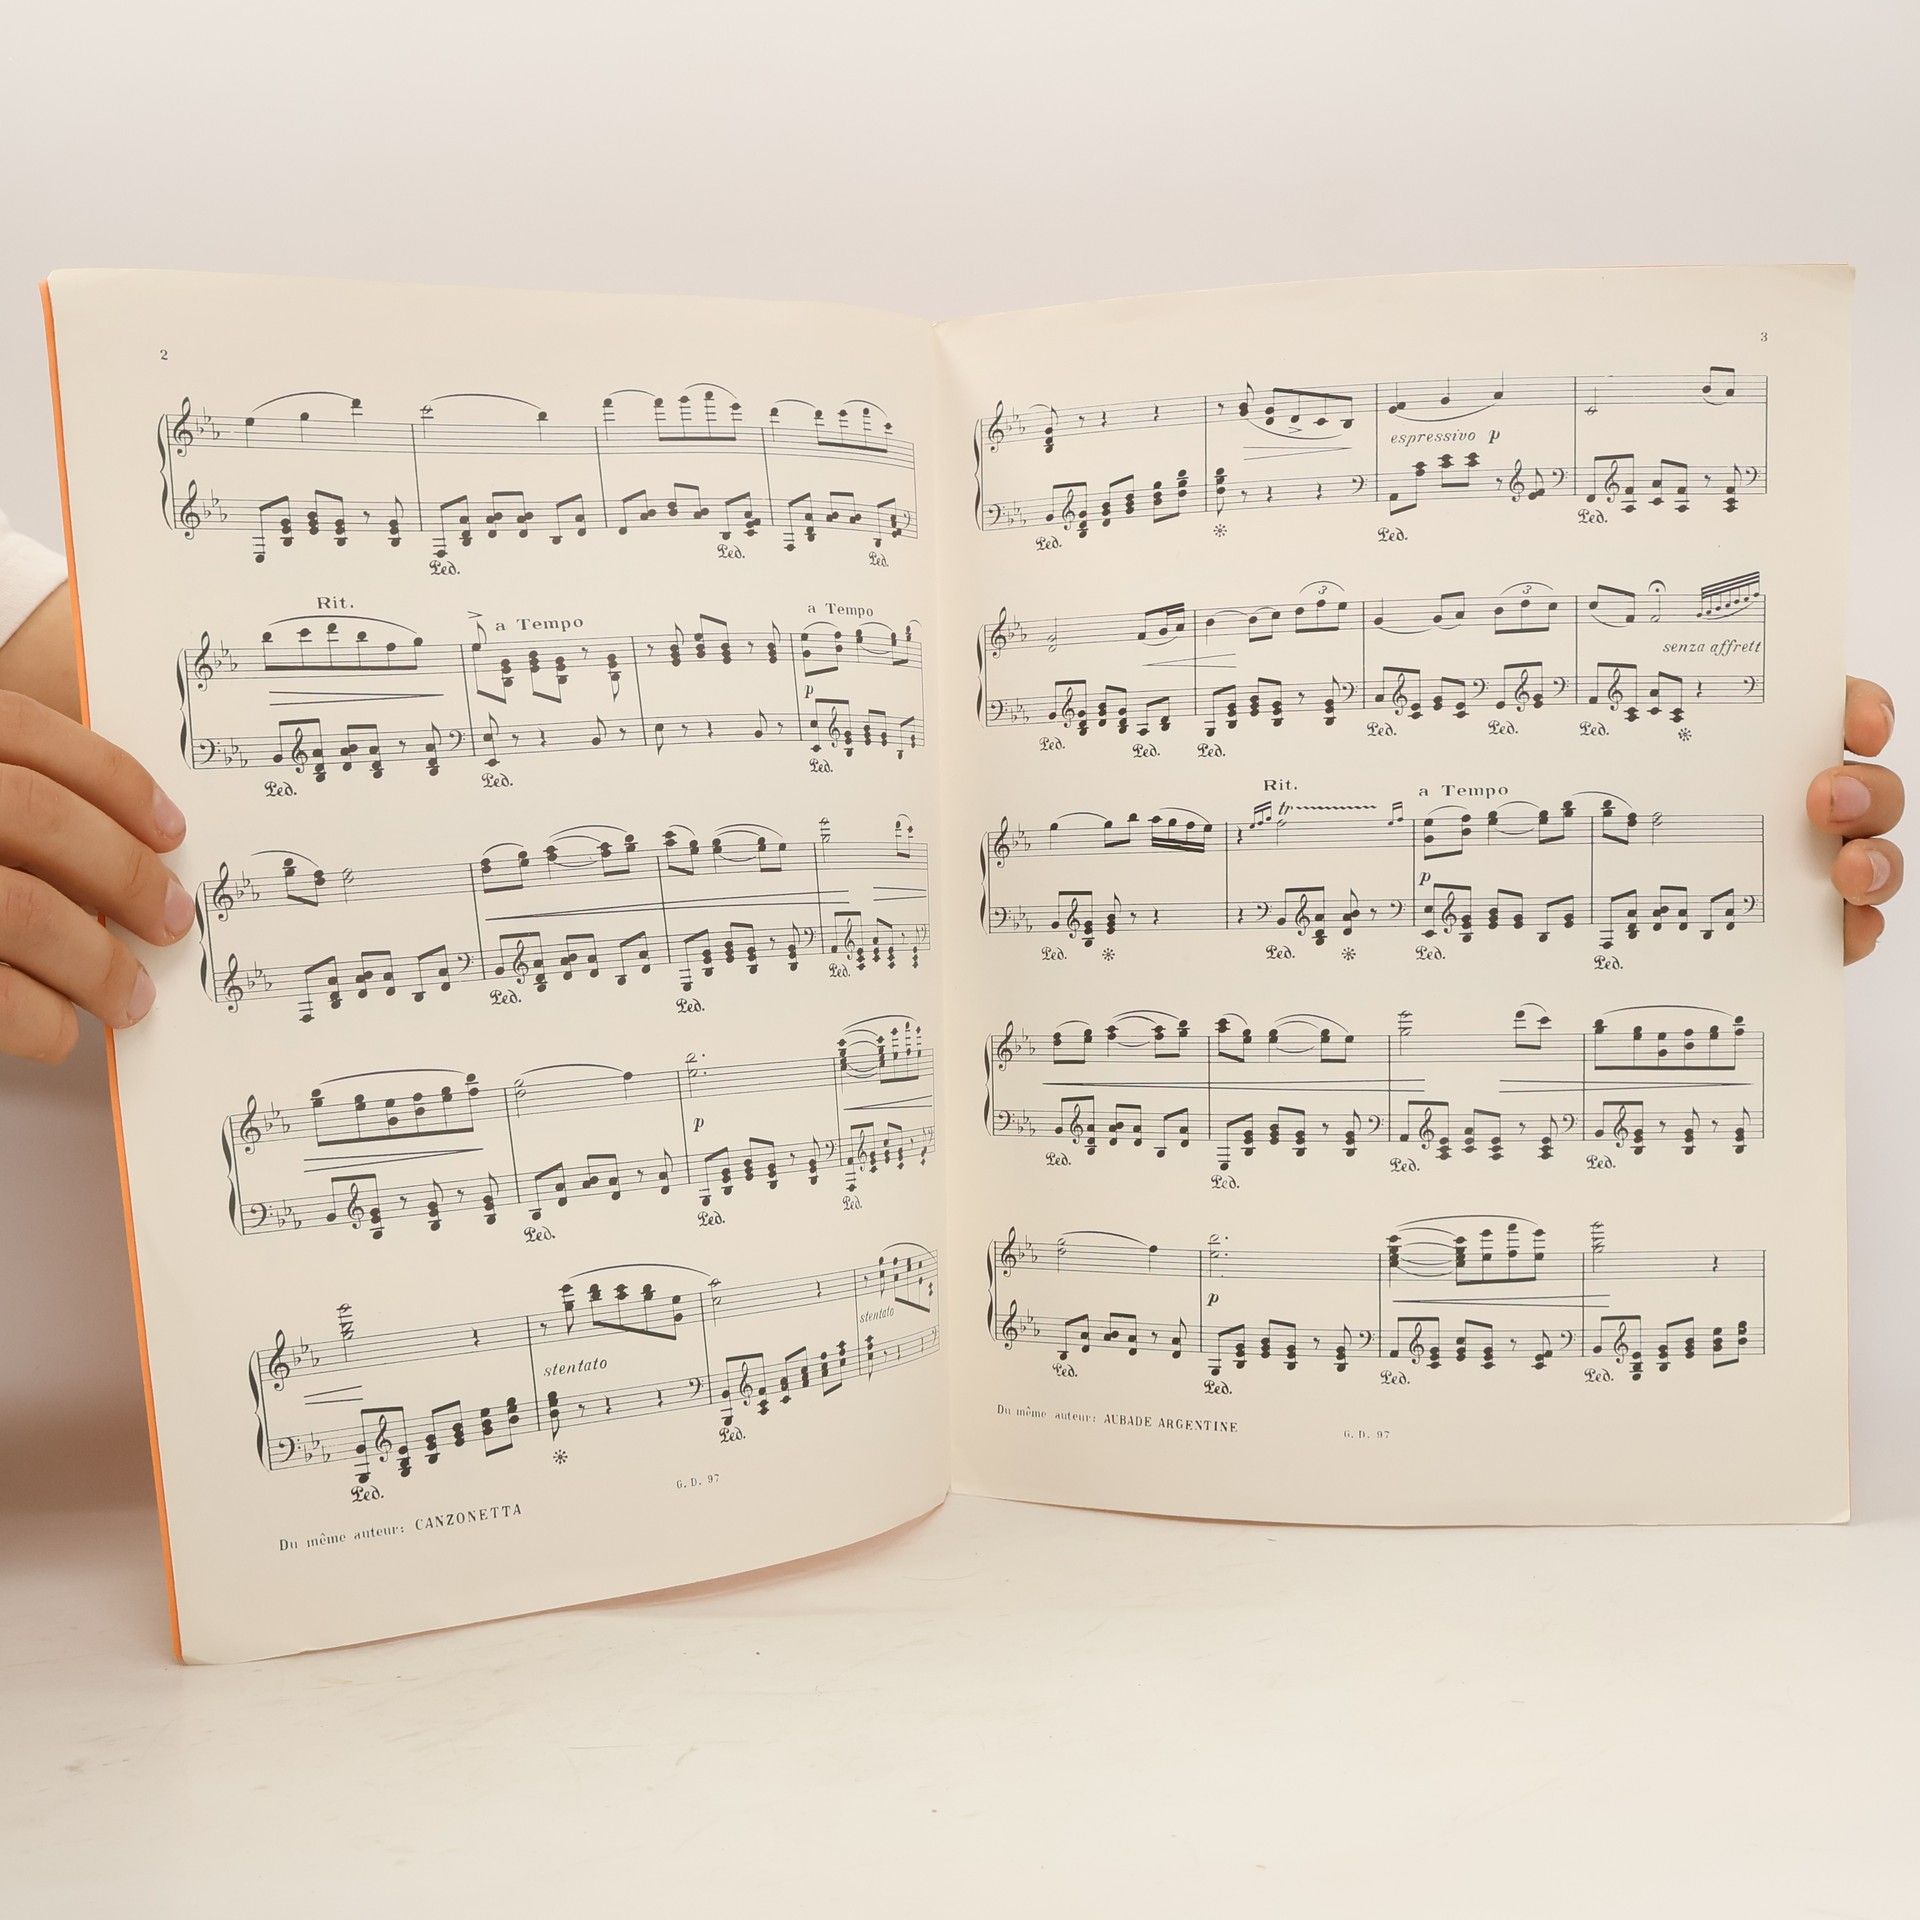 2
Ped. Ped. Ped.
Rit. a Tempo a Tempo
p
Ped. Ped. Ped.
Ped. Ped. Ped.
p
Ped. Ped. Ped.
stentato stentato
Ped. Ped.
G. D. 97
Du même auteur: CANZONETTA
3
espressivo p
Ped. Ped. Ped.
3 3
senza affrett
Ped. Ped. Ped. Ped. Ped. Ped.
Rit. a Tempo
tr
p
Ped. Ped. Ped. Ped.
Ped. Ped. Ped. Ped.
p
Ped. Ped. Ped. Ped.
Du même auteur: AUBADE ARGENTINE
G. D. 97